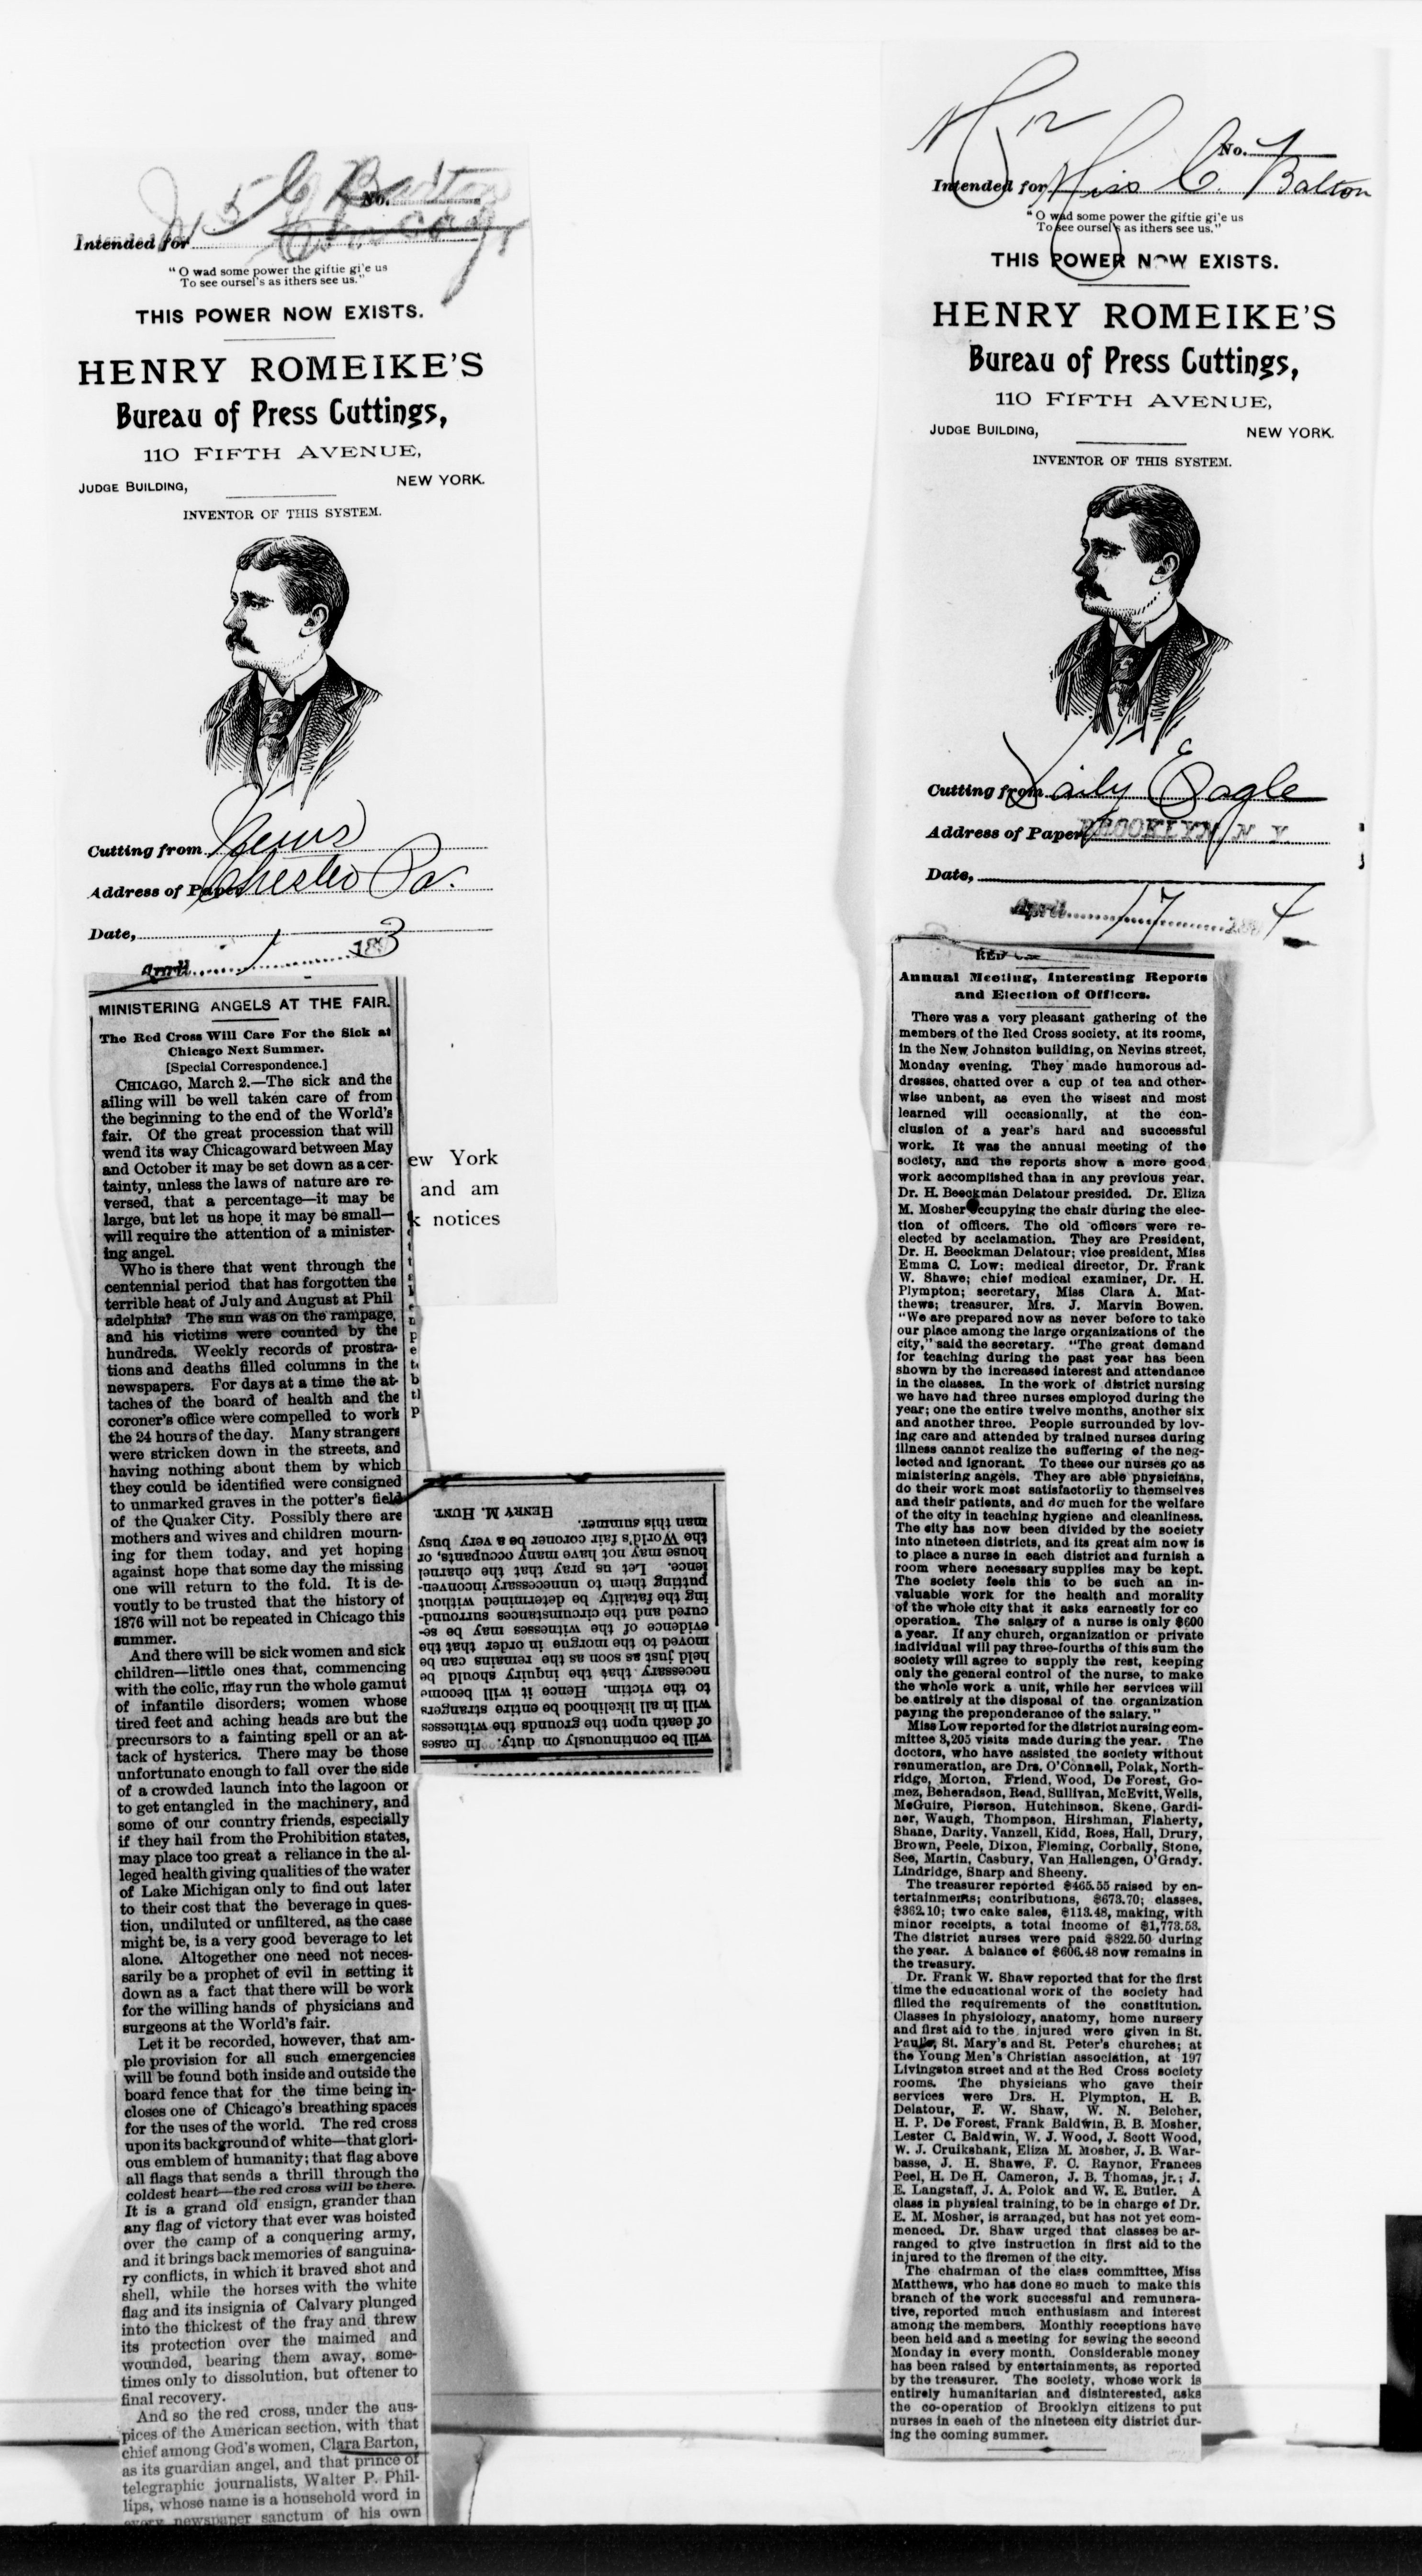 C Barton
No.
Intended for
"O wad some power the giftie gi'e us
To see oursel's as ithers see us."
THIS POWER NOW EXISTS.
HENRY ROMEIKE'S
Bureau of Press Cuttings,
110 FIFTH AVENUE,
JUDGE BUILDING, NEW YORK.
INVENTOR OF THIS SYSTEM.
Cutting from News
Address of Paper Chester Pa.
Date,
April 1 1893
MINISTERING ANGELS AT THE FAIR.
The Red Cross Will Care For the Sick at
Chicago Next Summer.
[Special Correspondence.]
CHICAGO, March 2.—The sick and the
ailing will be well taken care of from
the beginning to the end of the World's
fair. Of the great procession that will
wend its way Chicagoward between May
and October it may be set down as a cer-
tainty, unless the laws of nature are re-
versed, that a percentage—it may be
large, but let us hope it may be small—
will require the attention of a minister-
ing angel.
Who is there that went through the
centennial period that has forgotten the
terrible heat of July and August at Phil
adelphia? The sun was on the rampage,
and his victims were counted by the
hundreds. Weekly records of prostra-
tions and deaths filled columns in the
newspapers. For days at a time the at-
taches of the board of health and the
coroner's office were compelled to work
the 24 hours of the day. Many strangers
were stricken down in the streets, and
having nothing about them by which
they could be identified were consigned
to unmarked graves in the potter's field
of the Quaker City. Possibly there are
mothers and wives and children mourn-
ing for them today, and yet hoping
against hope that some day the missing
one will return to the fold. It is de-
voutly to be trusted that the history of
1876 will not be repeated in Chicago this
summer.
And there will be sick women and sick
children—little ones that, commencing
with the colic, may run the whole gamut
of infantile disorders; women whose
tired feet and aching heads are but the
precursors to a fainting spell or an at-
tack of hysterics. There may be those
unfortunate enough to fall over the side
of a crowded launch into the lagoon or
to get entangled in the machinery, and
some of our country friends, especially
if they hail from the Prohibition states,
may place too great a reliance in the al-
leged health giving qualities of the water
of Lake Michigan only to find out later
to their cost that the beverage in ques-
tion, undiluted or unfiltered, as the case
might be, is a very good beverage to let
alone. Altogether one need not neces-
sarily be a prophet of evil in setting it
down as a fact that there will be work
for the willing hands of physicians and
surgeons at the World's fair.
Let it be recorded, however, that am-
ple provision for all such emergencies
will be found both inside and outside the
board fence that for the time being in-
closes one of Chicago's breathing spaces
for the uses of the world. The red cross
upon its background of white—that glori-
ous emblem of humanity; that flag above
all flags that sends a thrill through the
coldest heart—the red cross will be there.
It is a grand old ensign, grander than
any flag of victory that ever was hoisted
over the camp of a conquering army,
and it brings back memories of sanguina-
ry conflicts, in which it braved shot and
shell, while the horses with the white
flag and its insignia of Calvary plunged
into the thickest of the fray and threw
its protection over the maimed and
wounded, bearing them away, some-
times only to dissolution, but oftener to
final recovery.
And so the red cross, under the aus-
pices of the American section, with that
chief among God's women, Clara Barton,
as its guardian angel, and that prince of
telegraphic journalists, Walter P. Phil-
lips, whose name is a household word in
every newspaper sanctum of his own
ew York
and am
k notices
will be continuously on duty. In cases
of death upon the grounds the witnesses
will in all likelihood be entire strangers
to the victim. Hence it will become
necessary that the inquiry should be
held just as soon as the remains can be
moved to the morgue in order that the
evidence of the witnesses may be se-
cured and the circumstances surround-
ing the fatality be determined without
putting them to unnecessary inconven-
ience. Let us pray that the charnel
house may not have many occupants, or
the World's fair coroner be a very busy
man this summer.
HENRY M. HUNT.
No.
Intended for Miss C. Balton
"O wad some power the giftie gi'e us
To see oursel's as ithers see us."
THIS POWER NOW EXISTS.
HENRY ROMEIKE'S
Bureau of Press Cuttings,
110 FIFTH AVENUE,
JUDGE BUILDING, NEW YORK.
INVENTOR OF THIS SYSTEM.
Cutting from Daily Eagle
Address of Paper BROOKLYN, N. Y.
Date,
April 17 1894
RED
Annual Meeting, Interesting Reports
and Election of Officers.
There was a very pleasant gathering of the
members of the Red Cross society, at its rooms,
in the New Johnston building, on Nevins street,
Monday evening. They made humorous ad-
dresses, chatted over a cup of tea and other-
wise unbent, as even the wisest and most
learned will occasionally, at the con-
clusion of a year's hard and successful
work. It was the annual meeting of the
society, and the reports show a more good
work accomplished than in any previous year.
Dr. H. Beeckman Delatour presided. Dr. Eliza
M. Mosher occupying the chair during the elec-
tion of officers. The old officers were re-
elected by acclamation. They are President,
Dr. H. Beeckman Delatour; vice president, Miss
Emma C. Low; medical director, Dr. Frank
W. Shawe; chief medical examiner, Dr. H.
Plympton; secretary, Miss Clara A. Mat-
thews; treasurer, Mrs. J. Marvin Bowen.
"We are prepared now as never before to take
our place among the large organizations of the
city," said the secretary. "The great demand
for teaching during the past year has been
shown by the increased interest and attendance
in the classes. In the work of district nursing
we have had three nurses employed during the
year; one the entire twelve months, another six
and another three. People surrounded by lov-
ing care and attended by trained nurses during
illness cannot realize the suffering of the neg-
lected and ignorant. To these our nurses go as
ministering angels. They are able physicians,
do their work most satisfactorily to themselves
and their patients, and do much for the welfare
of the city in teaching hygiene and cleanliness.
The city has now been divided by the society
into nineteen districts, and its great aim now is
to place a nurse in each district and furnish a
room where necessary supplies may be kept.
The society feels this to be such an in-
valuable work for the health and morality
of the whole city that it asks earnestly for co
operation. The salary of a nurse is only $600
a year. If any church, organization or private
individual will pay three-fourths of this sum the
society will agree to supply the rest, keeping
only the general control of the nurse, to make
the whole work a unit, while her services will
be entirely at the disposal of the organization
paying the preponderance of the salary."
Miss Low reported for the district nursing com-
mittee 3,205 visits made during the year. The
doctors, who have assisted the society without
renumeration, are Drs. O'Connell, Polak, North-
ridge, Morton, Friend, Wood, De Forest, Go-
mez, Beheradson, Read, Sullivan, McEvitt, Wells,
McGuire, Pierson, Hutchinson, Skene, Gardi-
ner, Waugh, Thompson, Hirshman, Flaherty,
Shane, Darity, Vanzell, Kidd, Ross, Hall, Drury,
Brown, Peele, Dixon, Fleming, Corbally, Stone,
See, Martin, Casbury, Van Hallengen, O'Grady,
Lindridge, Sharp and Sheeny.
The treasurer reported $465.55 raised by en-
tertainments; contributions, $673.70; classes,
$362.10; two cake sales, $113.48, making, with
minor receipts, a total income of $1,773.53.
The district nurses were paid $822.50 during
the year. A balance of $606.48 now remains in
the treasury.
Dr. Frank W. Shaw reported that for the first
time the educational work of the society had
filled the requirements of the constitution.
Classes in physiology, anatomy, home nursery
and first aid to the injured were given in St.
Paul's, St. Mary's and St. Peter's churches; at
the Young Men's Christian association, at 197
Livingston street and at the Red Cross society
rooms. The physicians who gave their
services were Drs. H. Plympton, H. B.
Delatour, F. W. Shaw, W. N. Belcher,
H. P. De Forest, Frank Baldwin, B. B. Mosher,
Lester C. Baldwin, W. J. Wood, J. Scott Wood,
W. J. Cruikshank, Eliza M. Mosher, J. B. War-
basse, J. H. Shawe, F. C. Raynor, Frances
Peel, H. De H. Cameron, J. B. Thomas, jr.; J.
E. Langstaff, J. A. Polok and W. E. Butler. A
class in physical training, to be in charge of Dr.
E. M. Mosher, is arranged, but has not yet com-
menced. Dr. Shaw urged that classes be ar-
ranged to give instruction in first aid to the
injured to the firemen of the city.
The chairman of the class committee, Miss
Matthews, who has done so much to make this
branch of the work successful and remunera-
tive, reported much enthusiasm and interest
among the members. Monthly receptions have
been held and a meeting for sewing the second
Monday in every month. Considerable money
has been raised by entertainments, as reported
by the treasurer. The society, whose work is
entirely humanitarian and disinterested, asks
the co-operation of Brooklyn citizens to put
nurses in each of the nineteen city district dur-
ing the coming summer.